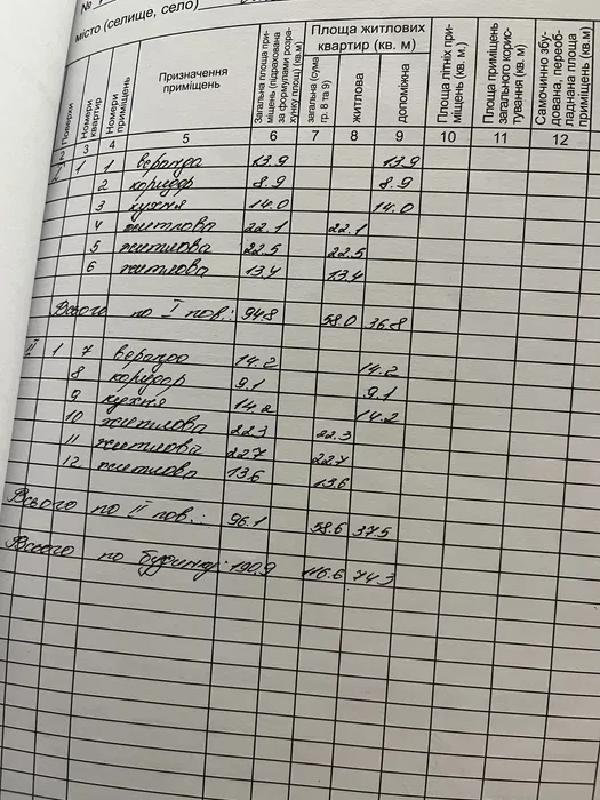 №
місто (селище, село)
Поверхи
Номери квартир
Номери приміщень
Призначення приміщень
Загальна площа при-
міщень (підрахована
за формулами розра-
хунку площ) (кв.м)
Площа житлових
квартир (кв. м)
загальна (сума
гр. 8 та 9)
житлова
допоміжна
Площа літніх при-
міщень (кв. м.)
Площа приміщень
загального корис-
тування (кв. м)
Самочинно збу-
дована, переоб-
ладнана площа
приміщень (кв.м)
2 3 4 5 6 7 8 9 10 11 12
I 1 1 веранда 13.9 13.9
2 коридор 8.9 8.9
3 кухня 14.0 14.0
4 житлова 22.1 22.1
5 житлова 22.5 22.5
6 житлова 13.4 13.4
Всього по I пов.: 94.8 58.0 36.8
II 1 7 веранда 14.2 14.2
8 коридор 9.1 9.1
9 кухня 14.2 14.2
10 житлова 22.3 22.3
11 житлова 22.7 22.7
12 житлова 13.6 13.6
Всього по II пов.: 96.1 58.6 37.5
Всього по будинку: 190.9 116.6 74.3